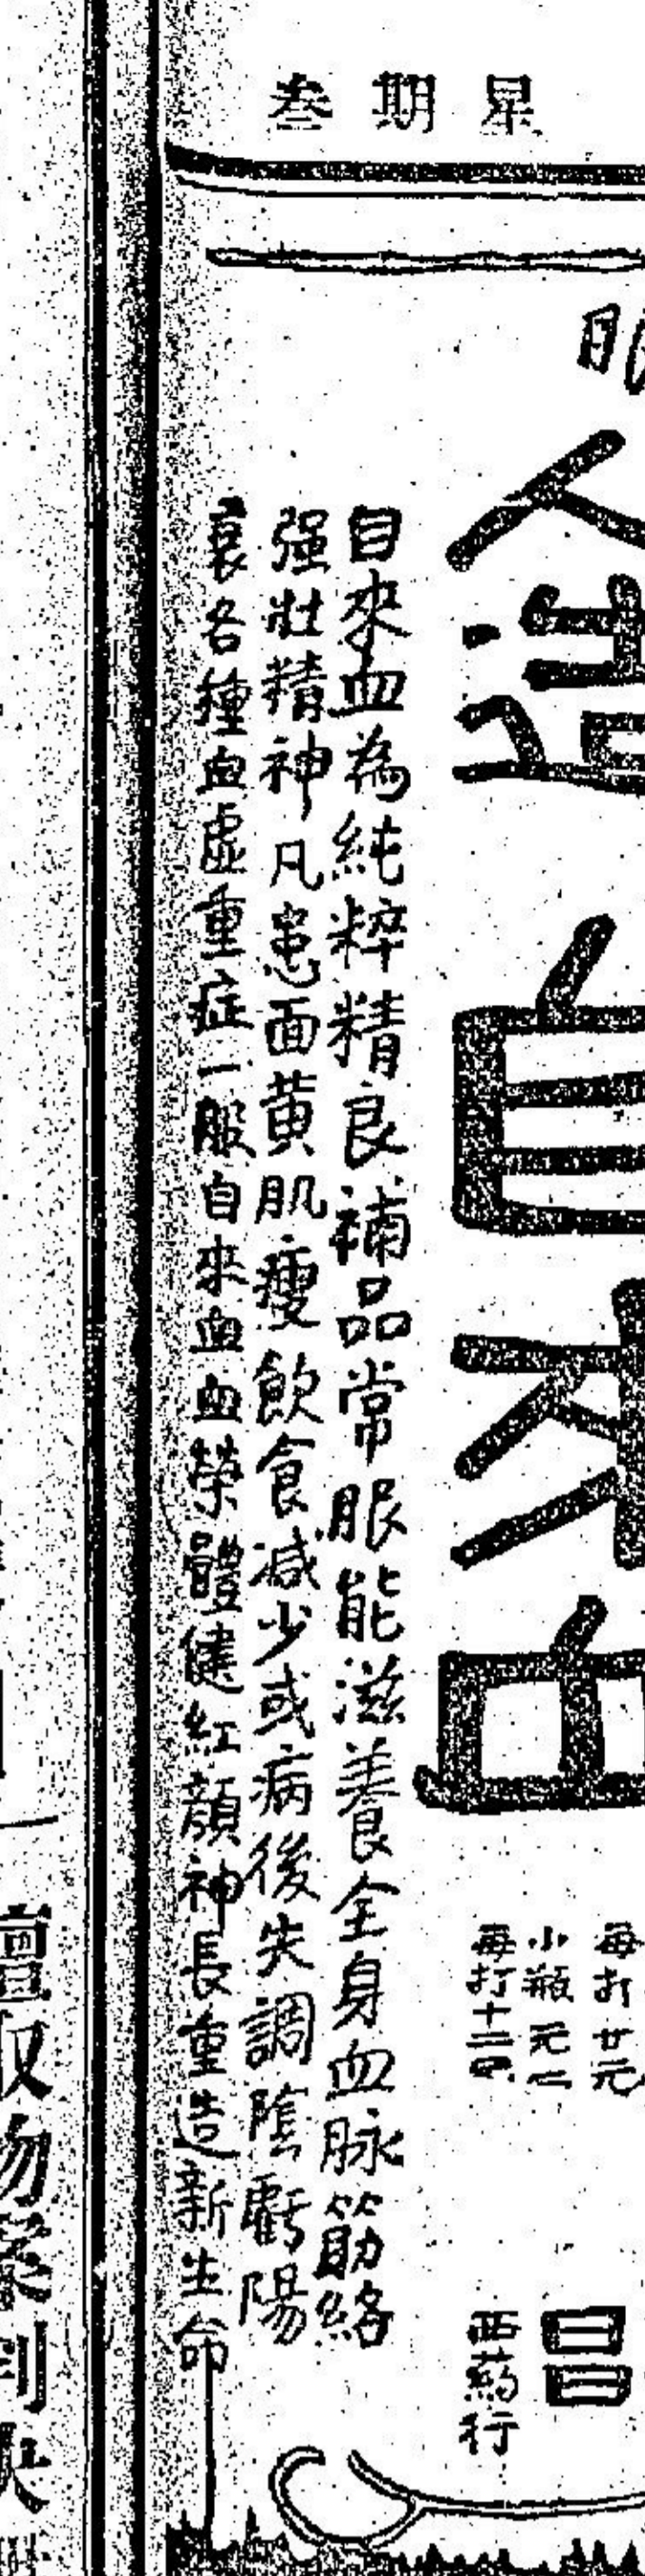 星期叁
人造
自來血
每打廿元
小瓶元二
每打十二
昌
西葯行
自來血為純粹精良補品常服能滋養全身血脉筋絡
强壯精神凡患面黃肌瘦飲食减少或病後失調陰虧陽
衰各種血虛重症一服自來血血榮體健紅顏神長重造新生命
取物案判决